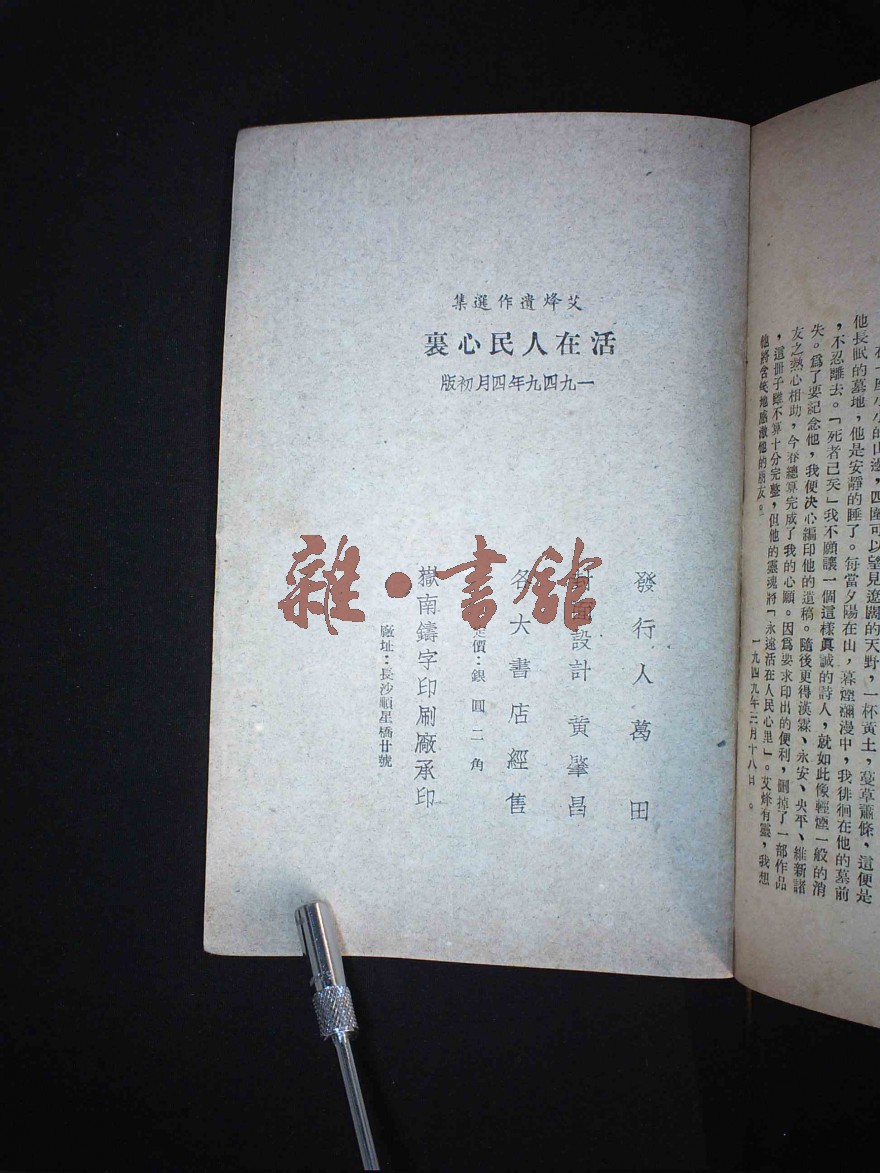 一座小小的山邊，四圍可以望見遼闊的天野，一杯黃土，蔓草蕭條，這便是
他長眠的墓地，他是安靜的睡了。每當夕陽在山，暮煙瀰漫中，我徘徊在他的墓前
，不忍離去。「死者已矣」我不願讓一個這樣眞誠的詩人，就如此像輕煙一般的消
失。爲了要記念他，我便決心編印他的遺稿。隨後更得漢霖、永安、央平、維新諸
友之熱心相助，今春總算完成了我的心願。因爲要求印出的便利，刪掉了一部作品
，這冊子雖不算十分完整，但他的靈魂將「永遠活在人民心里」。艾烽有靈，我想
他將含笑地感激他的朋友。
一九四九年三月十八日。
艾烽遺作選集
活在人民心裏
一九四九年四月初版
發行人萬田
封面設計 黄肇昌
各大書店經售
定價：銀圓二角
嶽南鑄字印刷廠承印
廠址：長沙順星橋廿號
雜·書館